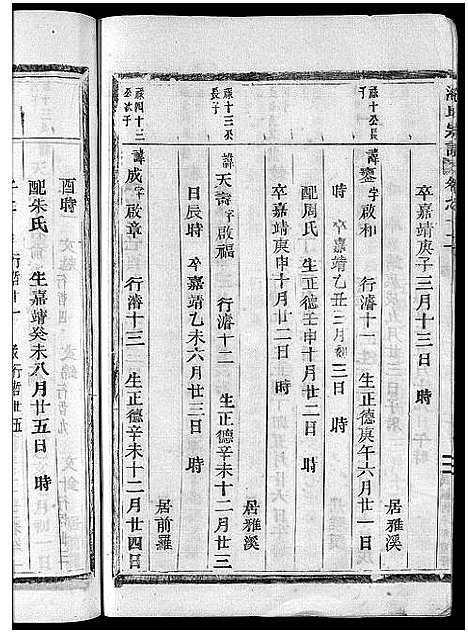 卒嘉靖庚子三月十三日 時
居雅溪
祿十公長子
諱鎏字啟和 行濟十一 生正德庚午六月廿一日
時 卒嘉靖乙丑三月初三日 時
配周氏 生正德壬申十月廿二日 時
卒嘉靖庚申十月廿二日 時
居雅溪
祿十三公長子
諱天壽字啟福 行濟十二 生正德辛未十二月廿三
日辰時 卒嘉靖乙未六月廿三日 時
居前羅
祿四十三公次子
諱成字啟章 行濟十三 生正德辛未十二月廿四日
酉時
配朱氏 生嘉靖癸未八月廿五日 時